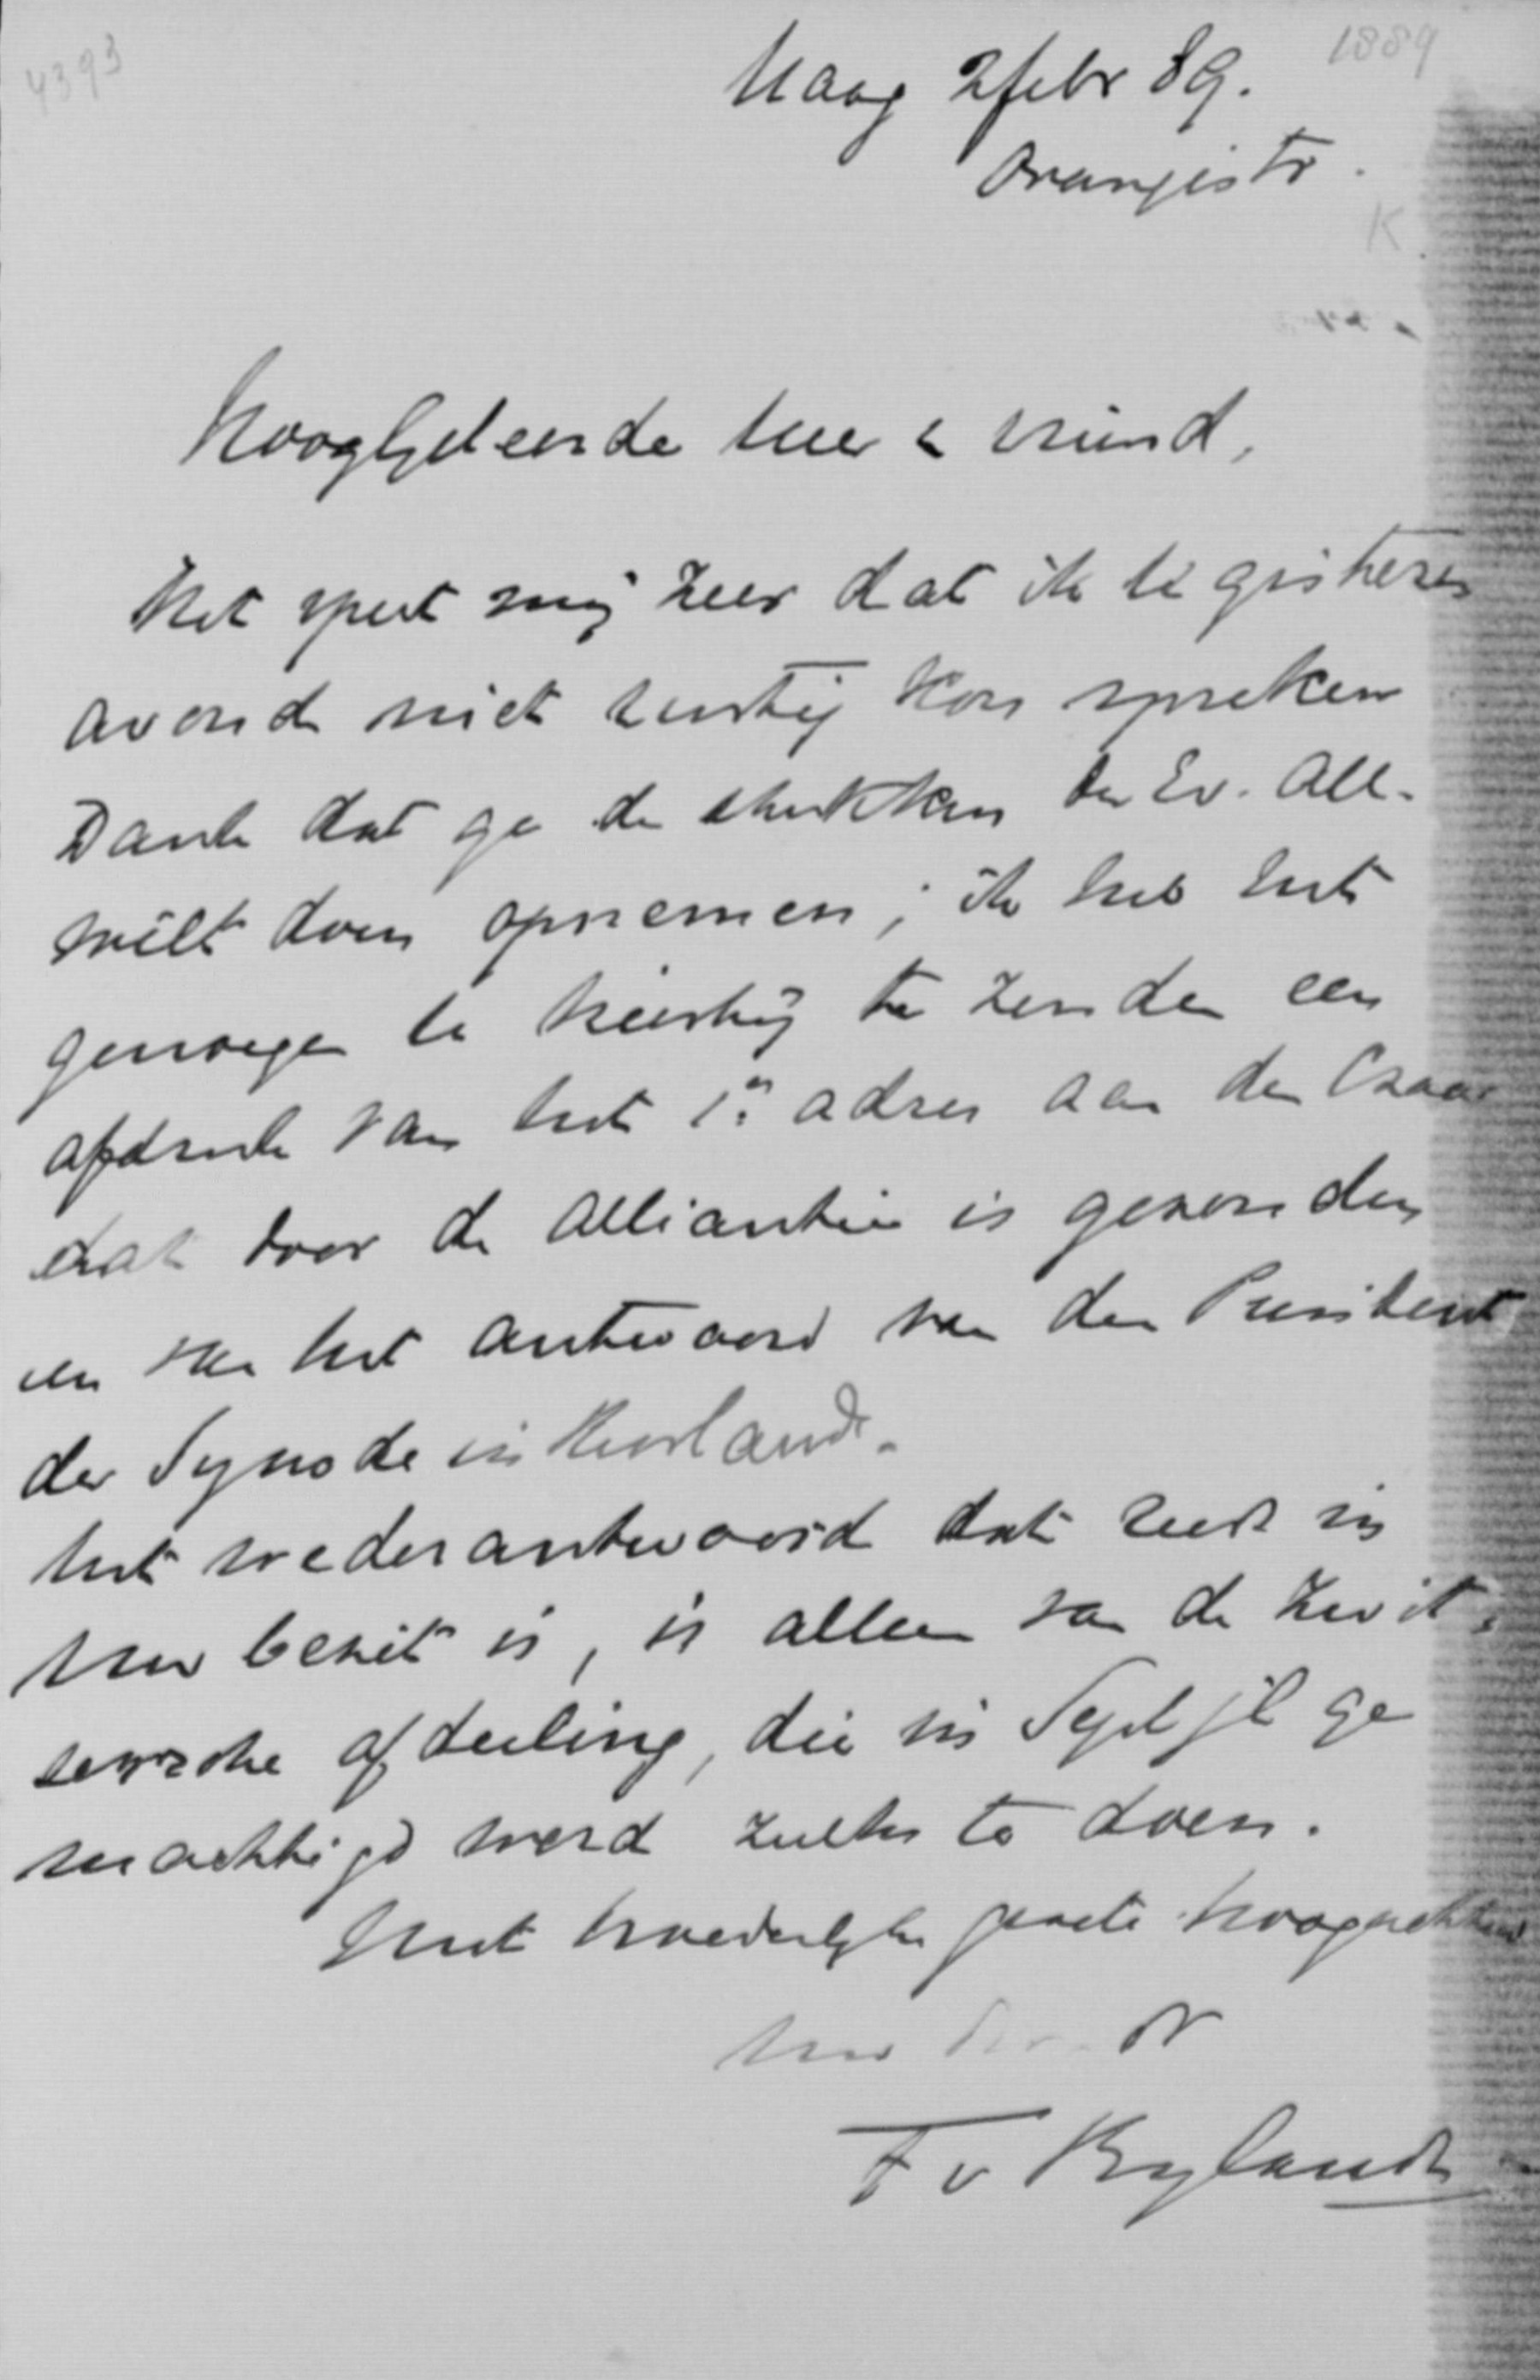 4393
1889
Haag 2 febr 89.
Oranjestr.
K
Hooggeleerde heer & vriend,
Het speet mij zeer dat ik U gisteren
avond niet rustig kon spreken
Dank dat ge de stukken der Ev. All.
wilt doen opnemen; ik heb het
genoegen U hierbij te zenden een
afdruk van het 1e adres aan den Czaar
dat door de Alliantie is gezonden
en van het antwoord van den President
der Synode in Koerland.
het wederantwoord dat reeds in
Uw bezit is, is alleen van de Zwit-
sersche afdeeling, die in Sept jl ge
machtigd werd zulks te doen.
Met broederlijke groete hoogachtend
Uw
F v Bylandt